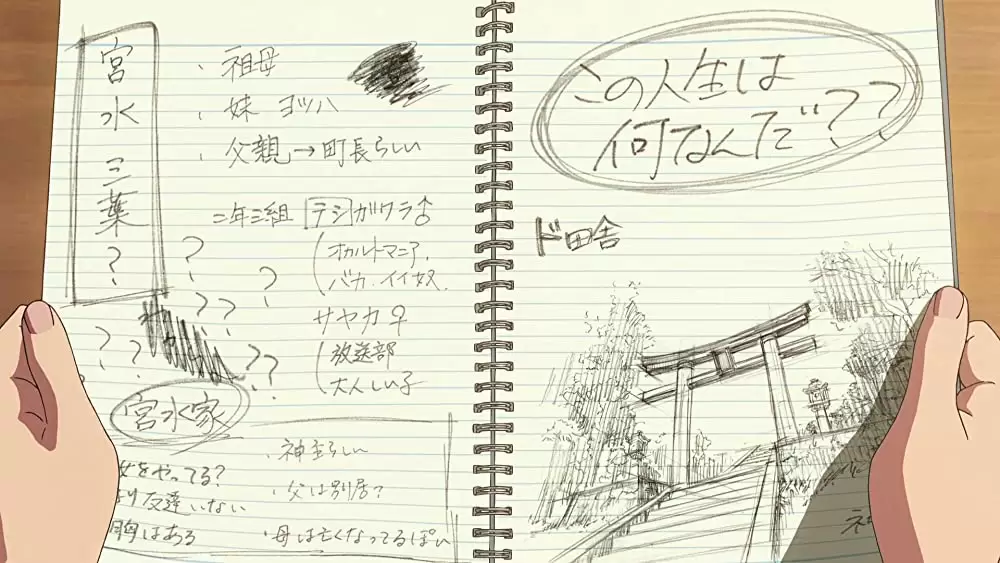 宮水三葉?
、祖母
、妹 ヨツハ
、父親→町長らしい
二年三組 テシガワラ♂
オカルトマニア.
バカ.イイ奴.
サヤカ♀
放送部
大人しい子
?
?
??
??
??
宮水家
をやってる?
友達いない
胸はある
.神主らしい
.父は別居?
.母は亡くなってるぽい
この人生は
何なんだ??
ド田舎